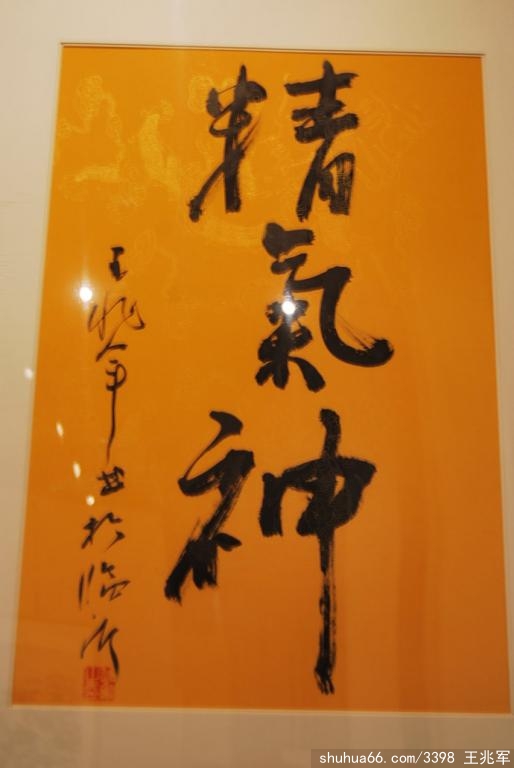 精氣神
王兆军书於临沂
shuhua66.com/3398 王兆军